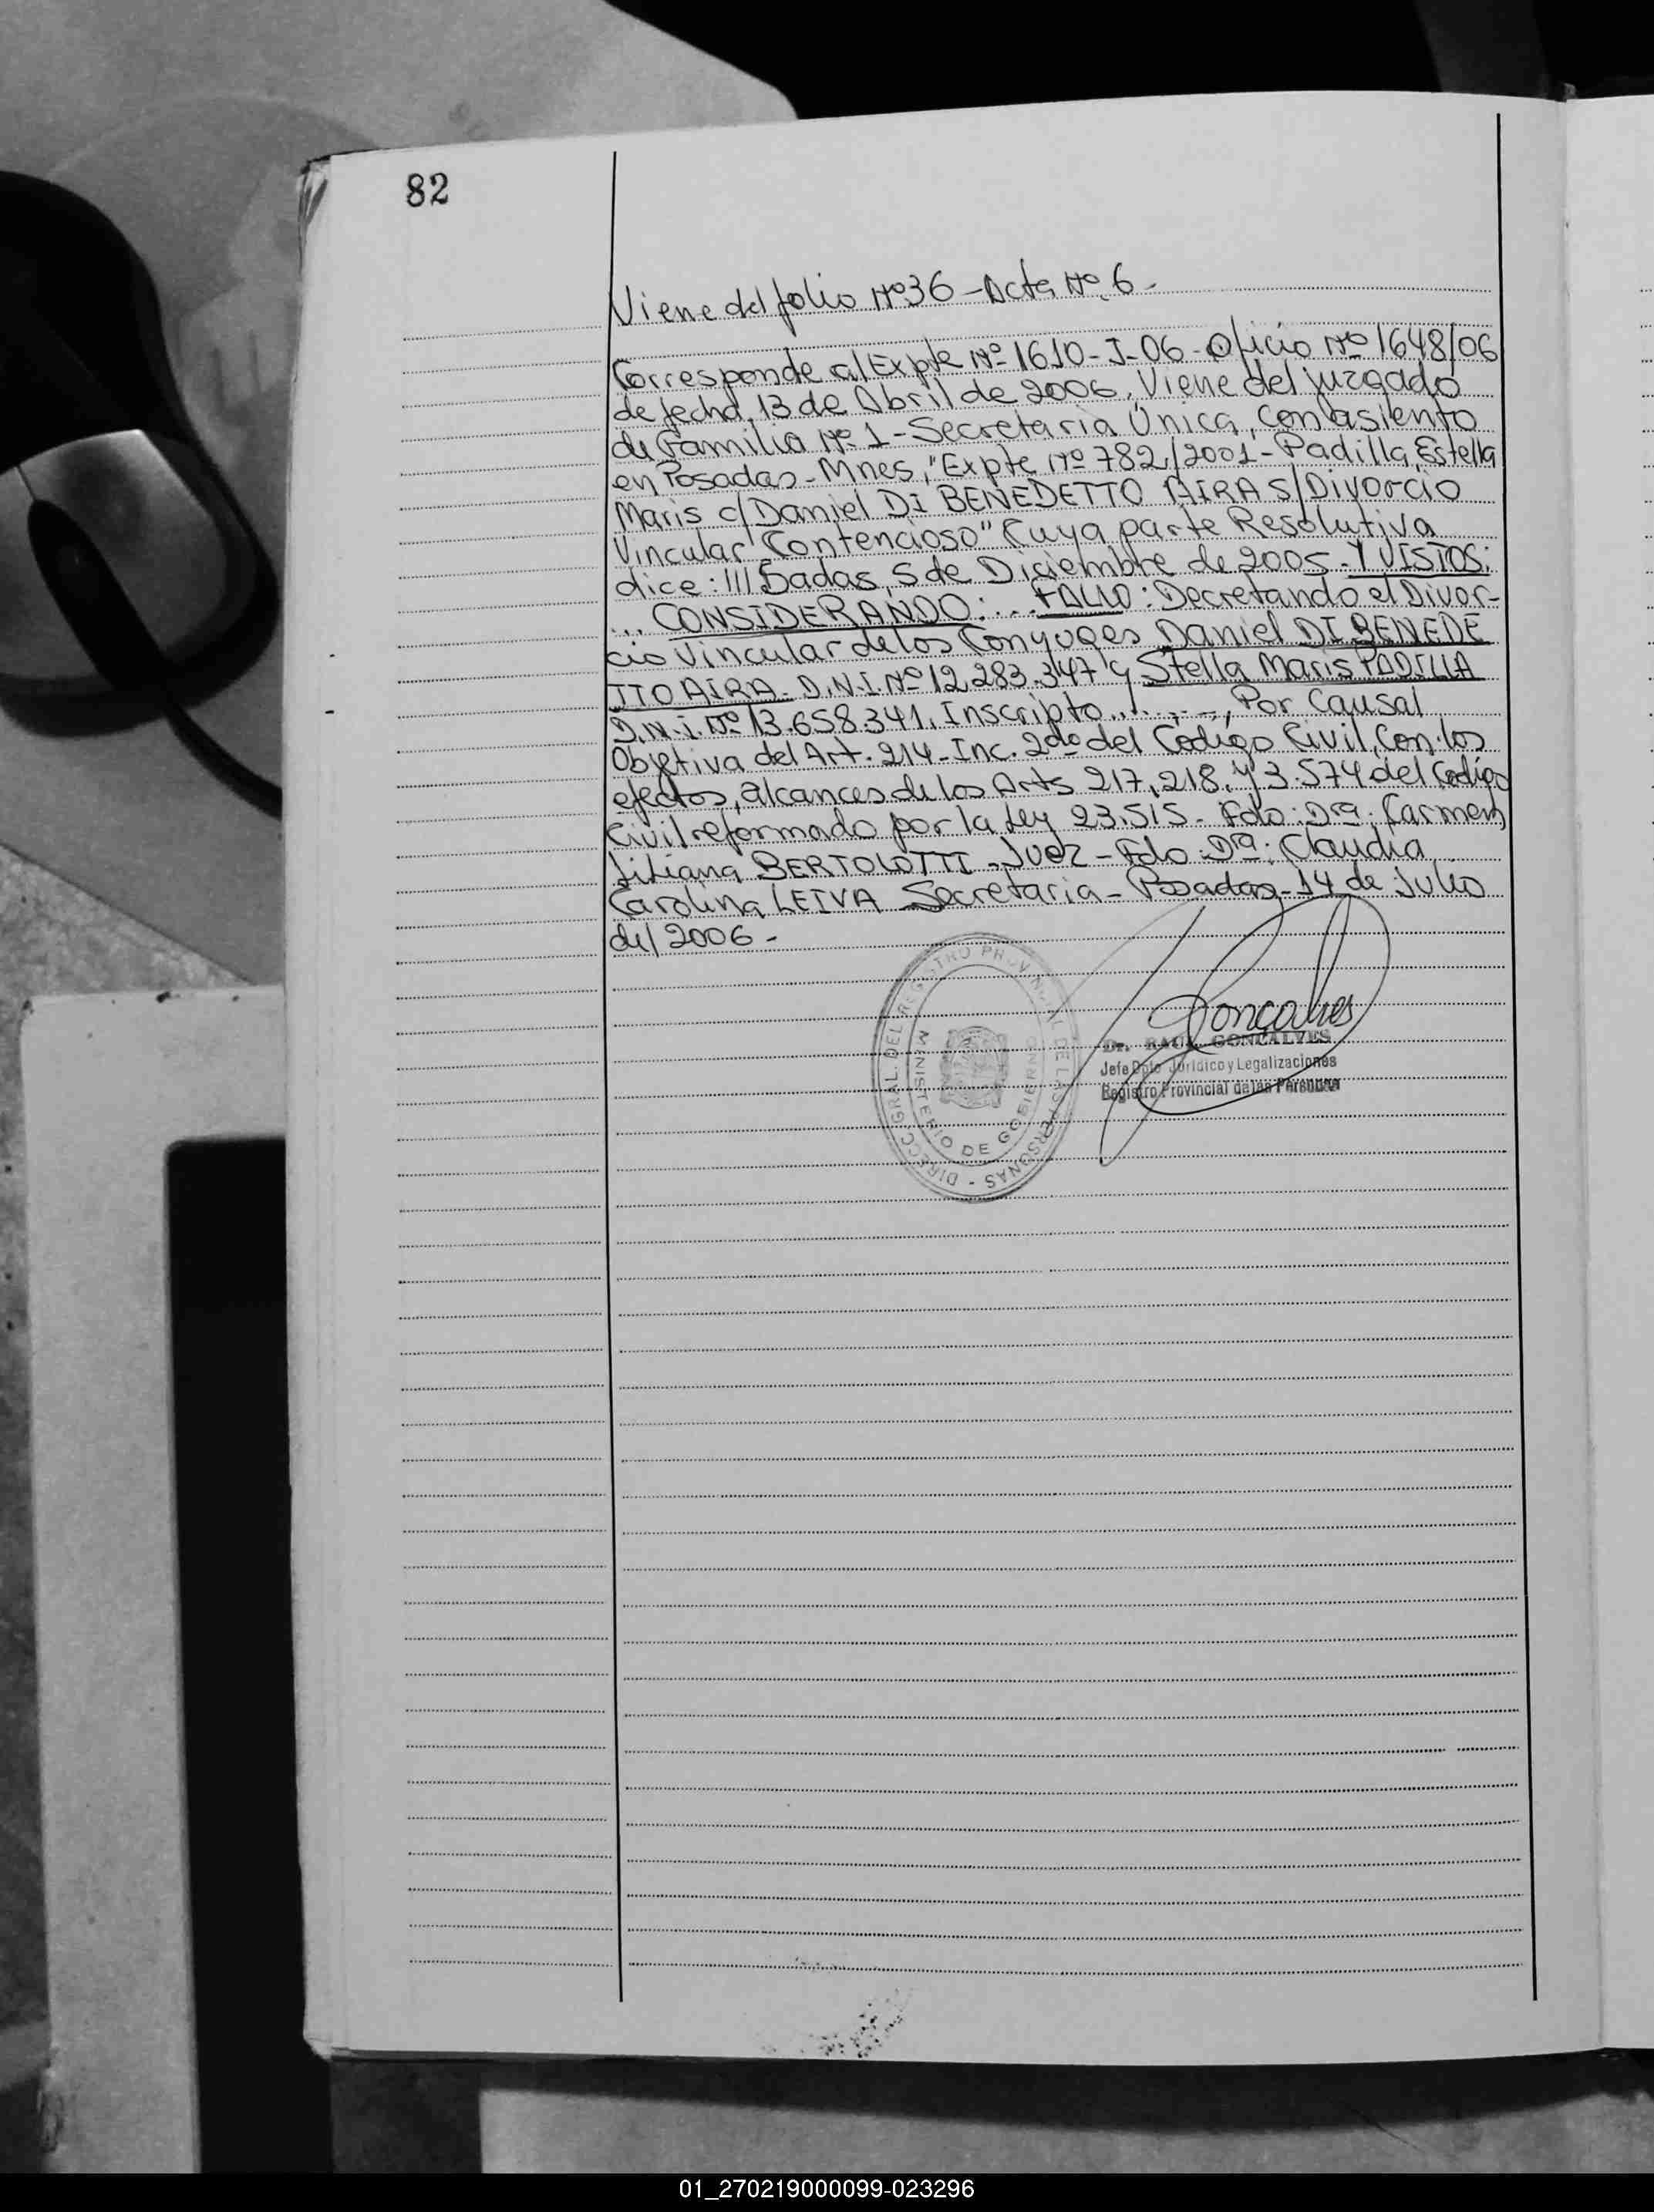 82
Viene del folio Nº 36 - Acta Nº 6 -
Corresponde al Expte Nº 1610-J-06 - Oficio Nº 1648/06
de fecha, 13 de Abril de 2006, Viene del juzgado
de Familia Nº 1 - Secretaria Única, con asiento
en Posadas - Mnes, "Expte Nº 782/2001 - Padilla, Estella
Maris c/ Daniel DI BENEDETTO AIRA S/ Divorcio
Vincular Contencioso" Cuya parte Resolutiva
dice: ///Sadas, 5 de Diciembre de 2005 - Y VISTOS:
... CONSIDERANDO: ... FALLO: Decretando el Divor-
cio Vincular de los Conyuges Daniel DI BENEDE
TTO AIRA - D.N.I. Nº 12.283.347 y Stella Maris PADILLA
D.N.I. Nº 13.658.341, Inscripto ........, Por Causal
Objetiva del Art. 214 - Inc. 2do del Codigo Civil, Con los
efectos, alcances de los Arts 217, 218, y 3.574 del Codigo
Civil reformado por la Ley 23.515 - Fdo: Dra: Carmen
Liliana BERTOLOTTI - Juez - Fdo: Dra: Claudia
Carolina LEIVA Secretaria - Posadas - 14 de Julio
del 2006 -
DIRECC. GRAL. DEL REGISTRO PROVINCIAL DE LAS PERSONAS -
MINISTERIO DE GOBIERNO
Gonçalves
Dr. RAUL GONCALVES
Jefe Dpto Jurídico y Legalizaciones
Registro Provincial de las Personas
01_270219000099-023296